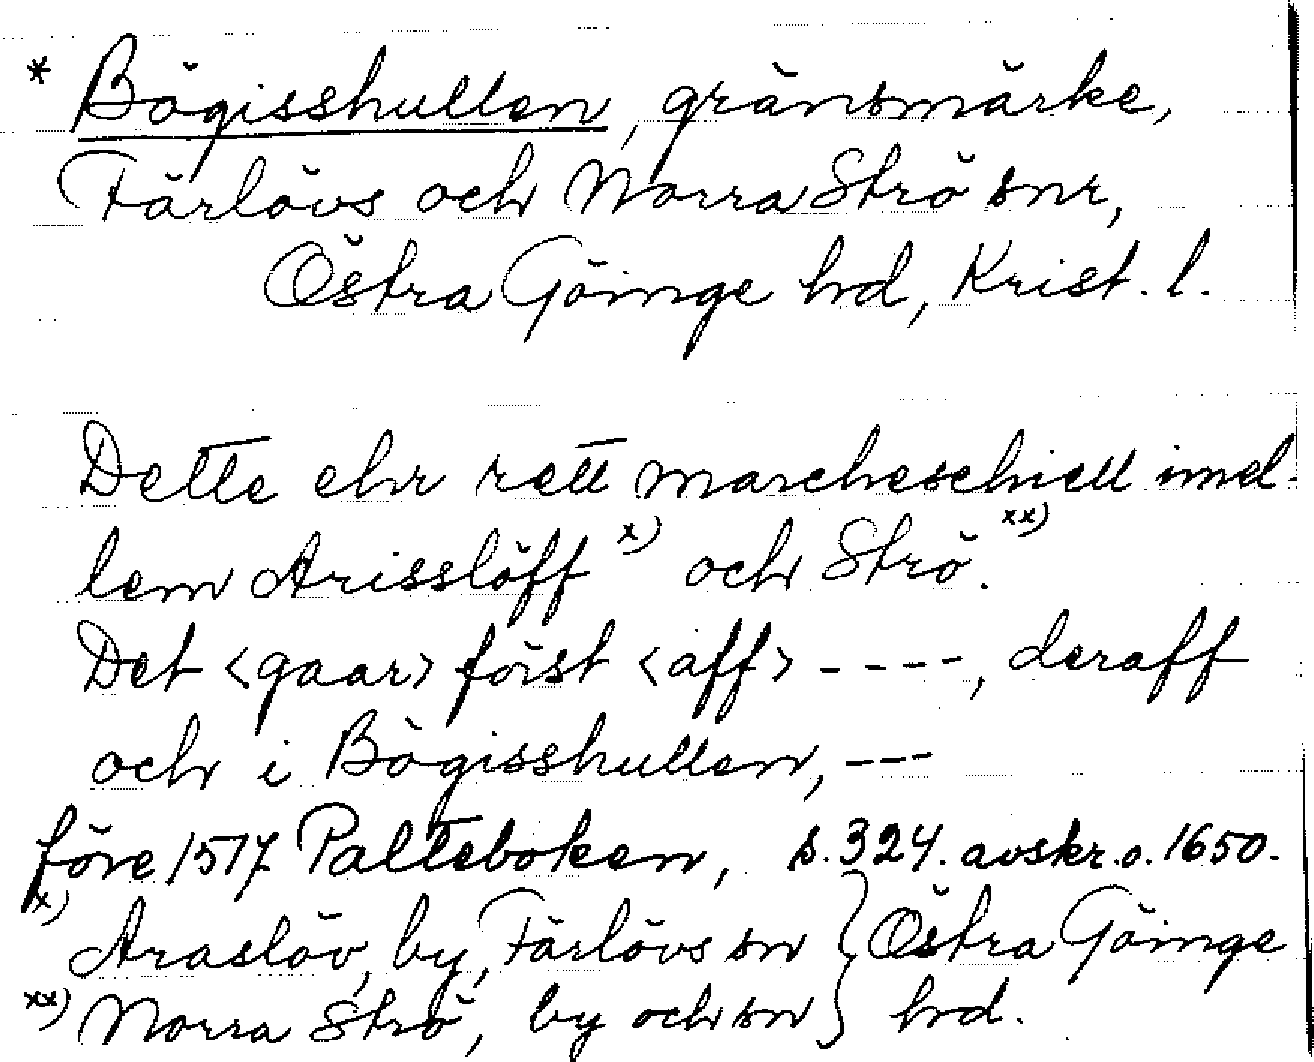 * Bögisshullen, gränsmärke,
Färlövs och Norra Strö snr,
Östra Göinge hd, Krist. l.
Dette ehr rett marcheschiell imel-
lem Arisslöff x) och Strö. xx)
Det <gaar> först <aff> ----, deraff
och i Bögisshullen, ---
före 1517 Palteboken, s. 324. avskr. o. 1650.
x) Araslöv, by, Färlövs sn } Östra Göinge
xx) Norra Strö, by och sn } hd.